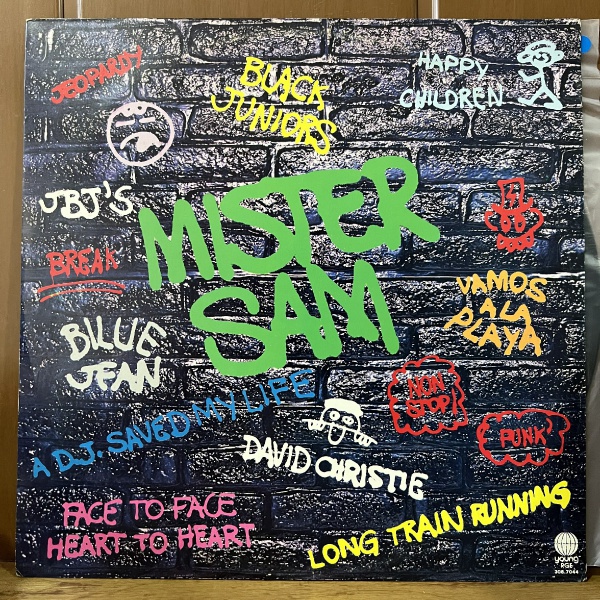 JEOPARDY
BLACK
JUNIORS
HAPPY
CHILDREN
JBJ'S
MISTER
SAM
BREAK
VAMOS
A LA
PLAYA
BILLIE
JEAN
NON
STOP!
A D.J. SAVED MY LIFE
PUNK
DAVID CHRISTIE
FACE TO FACE
HEART TO HEART
LONG TRAIN RUNNING
young
RGE
308.7044